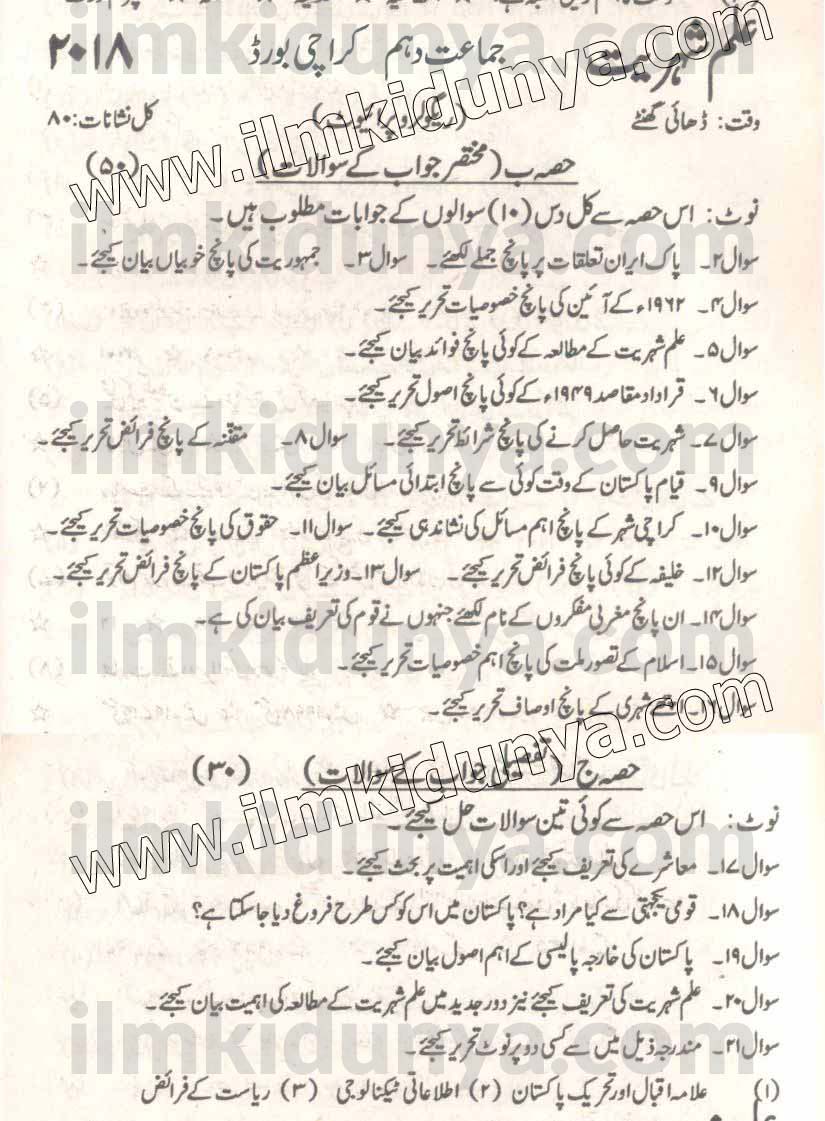 علم شہریت جماعت دہم کراچی بورڈ ۲۰۱۸
وقت: ڈھائی گھنٹے (ریگولر و پرائیوٹ) کل نشانات: ۸۰
حصہ ب (مختصر جواب کے سوالات) (۵۰)
نوٹ: اس حصہ سے کل دس (۱۰) سوالوں کے جوابات مطلوب ہیں۔
سوال ۲۔ پاک ایران تعلقات پر پانچ جملے لکھئے۔ سوال ۳۔ جمہوریت کی پانچ خوبیاں بیان کیجئے۔
سوال ۴۔ ۱۹۶۲ء کے آئین کی پانچ خصوصیات تحریر کیجئے۔
سوال ۵۔ علم شہریت کے مطالعہ کے کوئی پانچ فوائد بیان کیجئے۔
سوال ۶۔ قراداد مقاصد ۱۹۴۹ء کے کوئی پانچ اصول تحریر کیجئے۔
سوال ۷۔ شہریت حاصل کرنے کی پانچ شرائط تحریر کیجئے۔ سوال ۸۔ مقنّنہ کے پانچ فرائض تحریر کیجئے۔
سوال ۹۔ قیام پاکستان کے وقت کوئی سے پانچ ابتدائی مسائل بیان کیجئے۔
سوال ۱۰۔ کراچی شہر کے پانچ اہم مسائل کی نشاندہی کیجئے۔ سوال ۱۱۔ حقوق کی پانچ خصوصیات تحریر کیجئے۔
سوال ۱۲۔ خلیفہ کے کوئی پانچ فرائض تحریر کیجئے۔ سوال ۱۳۔ وزیراعظم پاکستان کے پانچ فرائض تحریر کیجئے۔
سوال ۱۴۔ ان پانچ مغربی مفکروں کے نام لکھئے جنہوں نے قوم کی تعریف بیان کی ہے۔
سوال ۱۵۔ اسلام کے تصور ملت کی پانچ اہم خصوصیات تحریر کیجئے۔
سوال ۱۶۔ اچھے شہری کے پانچ اوصاف تحریر کیجئے۔
حصہ ج (تفصیلی جواب کے سوالات) (۳۰)
نوٹ: اس حصہ سے کوئی تین سوالات حل کیجئے۔
سوال ۱۷۔ معاشرے کی تعریف کیجئے اور اسکی اہمیت پر بحث کیجئے۔
سوال ۱۸۔ قومی یکجہتی سے کیا مراد ہے؟ پاکستان میں اس کو کس طرح فروغ دیا جا سکتا ہے؟
سوال ۱۹۔ پاکستان کی خارجہ پالیسی کے اہم اصول بیان کیجئے۔
سوال ۲۰۔ علم شہریت کی تعریف کیجئے نیز دور جدید میں علم شہریت کے مطالعہ کی اہمیت بیان کیجئے۔
سوال ۲۱۔ مندرجہ ذیل میں سے کسی دو پر نوٹ تحریر کیجئے۔
(۱) علامہ اقبال اور تحریک پاکستان (۲) اطلاعاتی ٹیکنالوجی (۳) ریاست کے فرائض
www.ilmkidunya.com
www.ilmkidunya.com
ilmkidunya.com
ilmkidunya.com
ilmkidunya.com
ilmkidunya.com
ilmkidunya.com
ilmkidunya.com